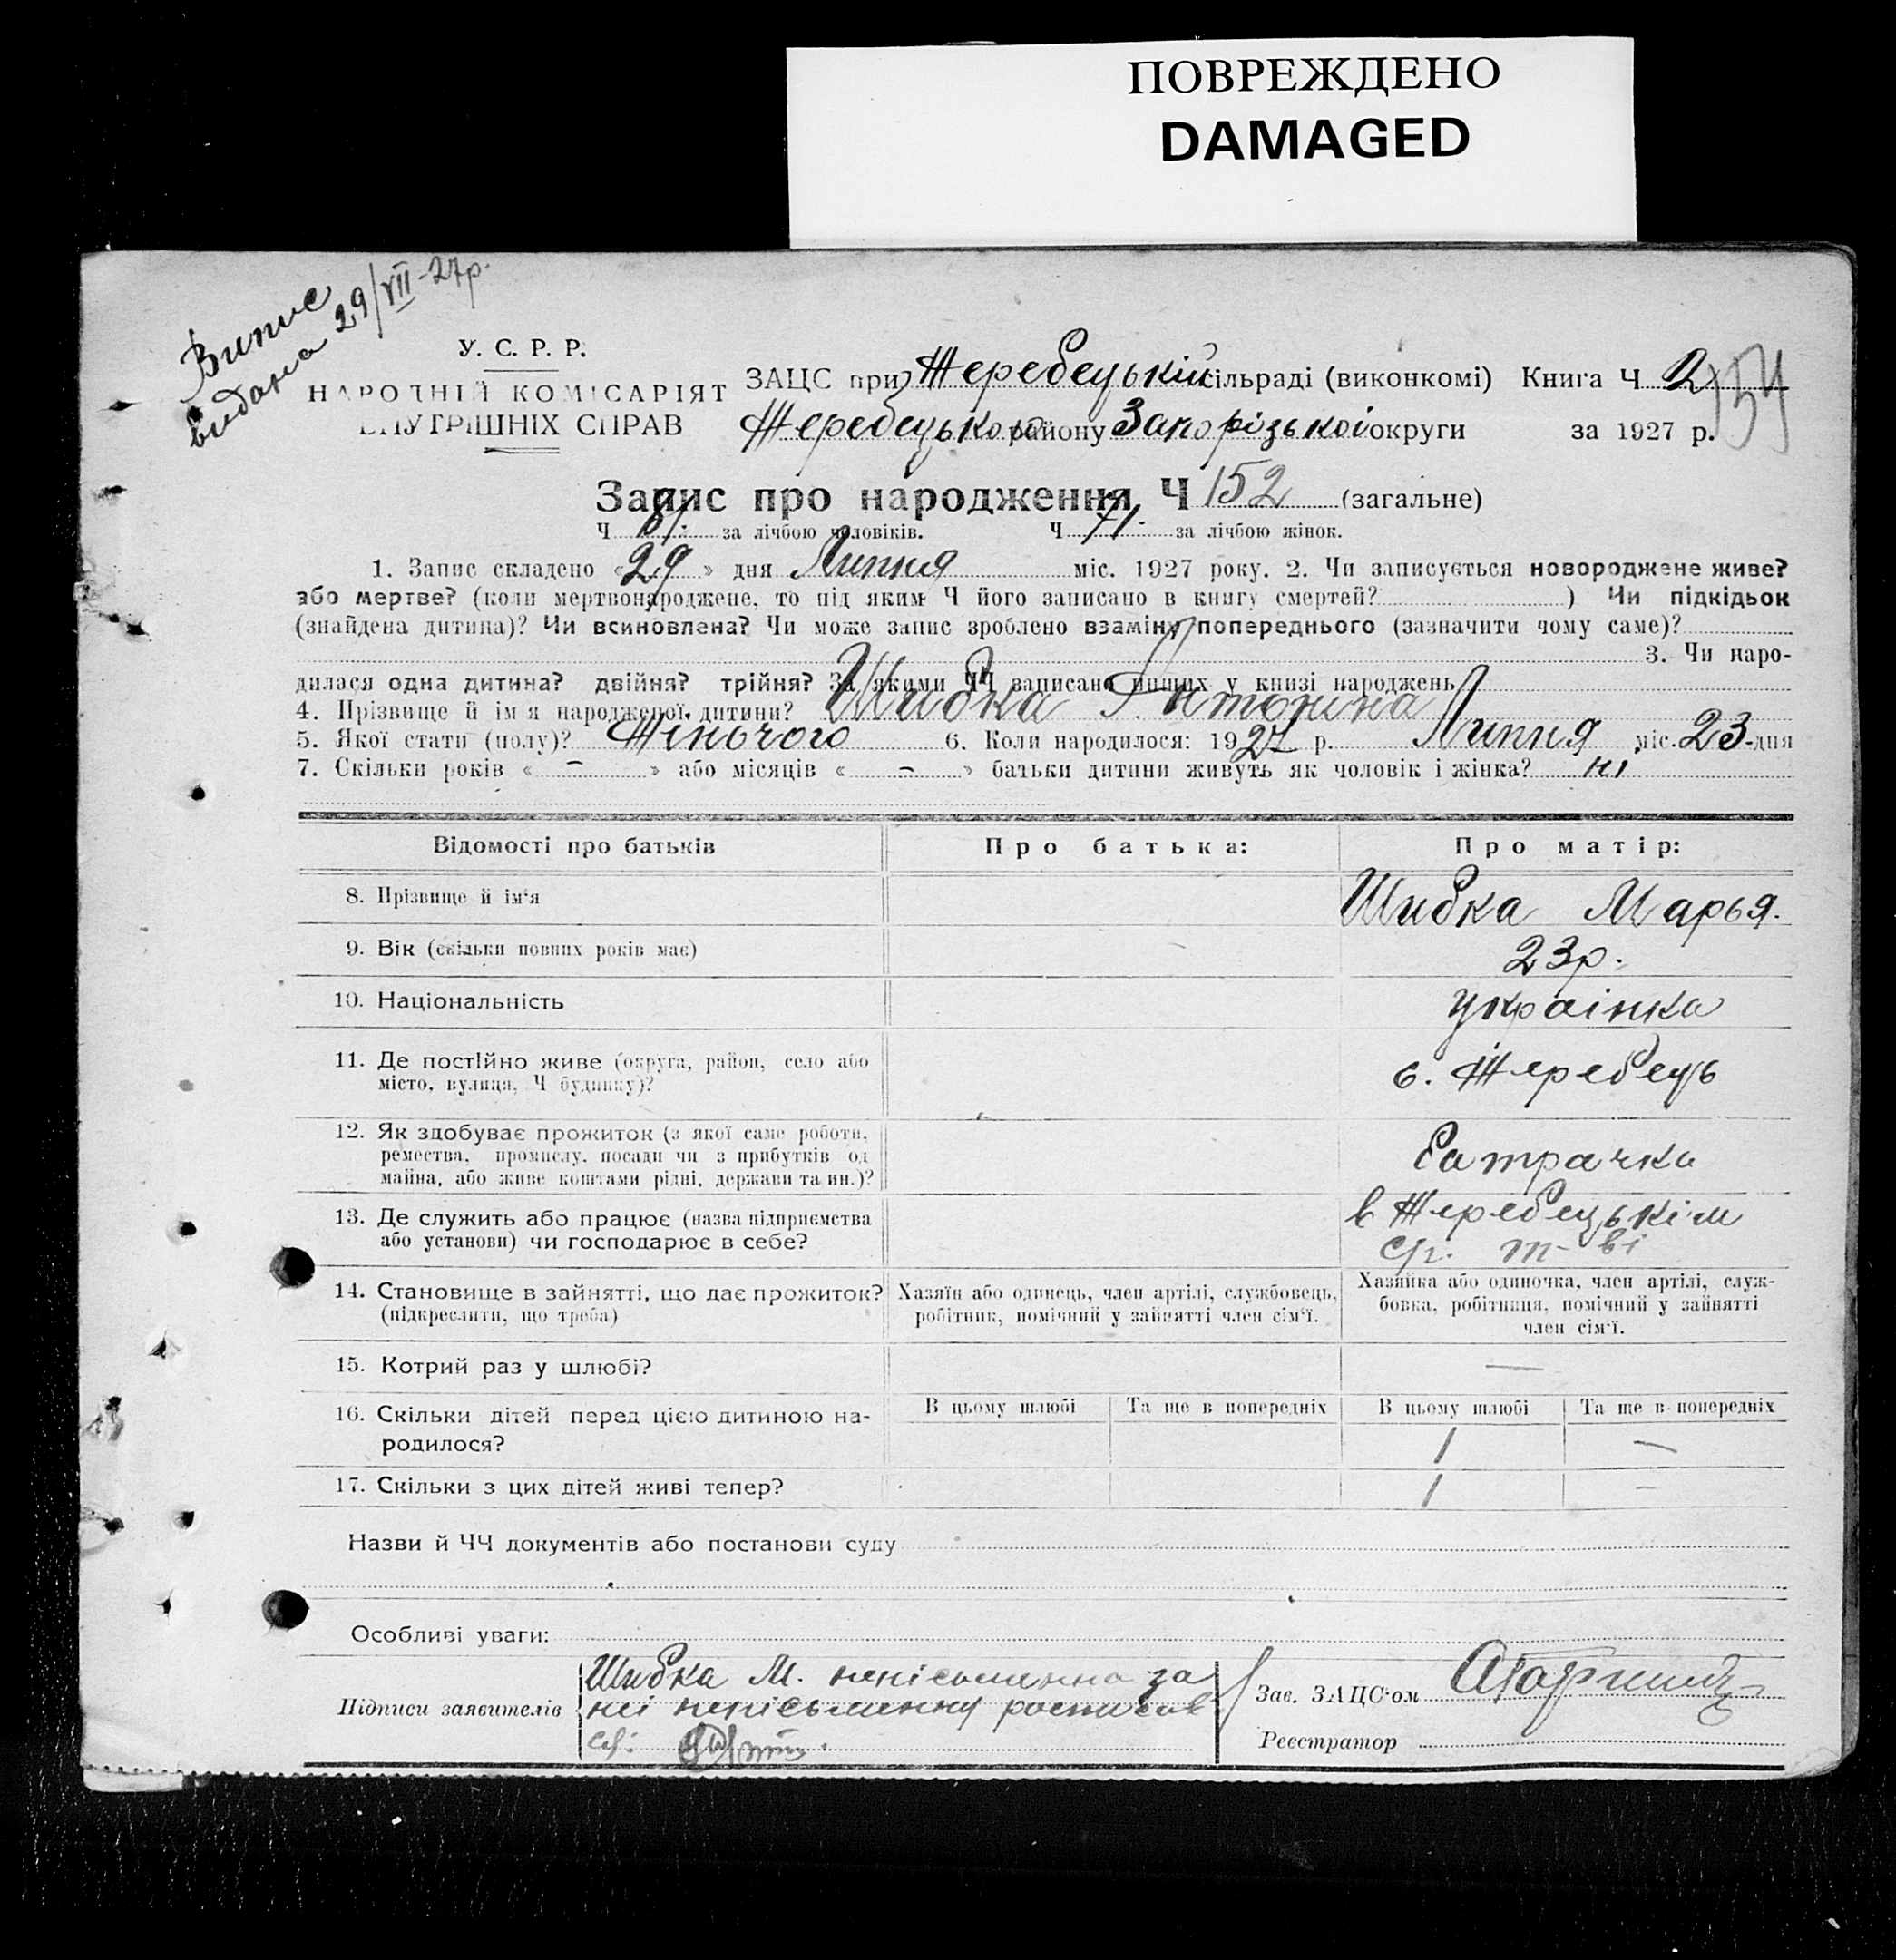 ПОВРЕЖДЕНО
DAMAGED
Випис
видана 29/VII-27р.
У. С. Р. Р.
НАРОДНІЙ КОМІСАРІЯТ
ВНУТРІШНІХ СПРАВ
ЗАЦС при Жеребецькій сільраді (виконкомі) Книга Ч 2
154
Жеребецького району Запорізької округи за 1927 р.
Запис про народження Ч 152 (загальне)
Ч 81. за лічбою чоловіків. Ч 71. за лічбою жінок.
1. Запис складено «29» дня Липня міс. 1927 року. 2. Чи записується новороджене живе?
або мертве? (коли мертвонароджене, то під яким Ч його записано в книгу смертей? ) Чи підкідьок
(знайдена дитина)? Чи всиновлена? Чи може запис зроблено взамін попереднього (зазначити чому саме)?
3. Чи наро-
дилася одна дитина? двійня? трійня? За якими ЧЧ записано инших у книзі народжень
4. Прізвище й ім'я народженої дитини? Шибка Антонина
5. Якої стати (полу)? Жіночого 6. Коли народилося: 1927 р. Липня міс. 23-дня
7. Скільки років « – » або місяців « – » батьки дитини живуть як чоловік і жінка? ні
Відомості про батьків Про батька: Про матір:
8. Прізвище й ім'я Шибка Марья.
9. Вік (скільки повних років має) 23р.
10. Національність українка
11. Де постійно живе (округа, район, село або
місто, вулиця, Ч будинку)? с. Жеребець
12. Як здобуває прожиток (з якої саме роботи,
ремества, промислу, посади чи з прибутків од
майна, або живе коштами рідні, держави та ин.)? батрачка
13. Де служить або працює (назва підприємства
або установи) чи господарює в себе? в Жеребецькім
с/г. т-ві
14. Становище в зайнятті, що дає прожиток?
(підкреслити, що треба)
Хазяїн або одинець, член артілі, службовець,
робітник, помічний у зайнятті член сім'ї.
Хазяйка або одиночка, член артілі, служ-
бовка, робітниця, помічний у зайнятті
член сім'ї.
15. Котрий раз у шлюбі? —
16. Скільки дітей перед цією дитиною на-
родилося?
В цьому шлюбі Та ще в попередніх В цьому шлюбі Та ще в попередніх
1 —
17. Скільки з цих дітей живі тепер? 1 –
Назви й ЧЧ документів або постанови суду
Особливі уваги:
Підписи заявителів
Шибка М. неписьменна за
неї неписьменну росписав
ся:
Зав. ЗАЦС'ом
Реєстратор